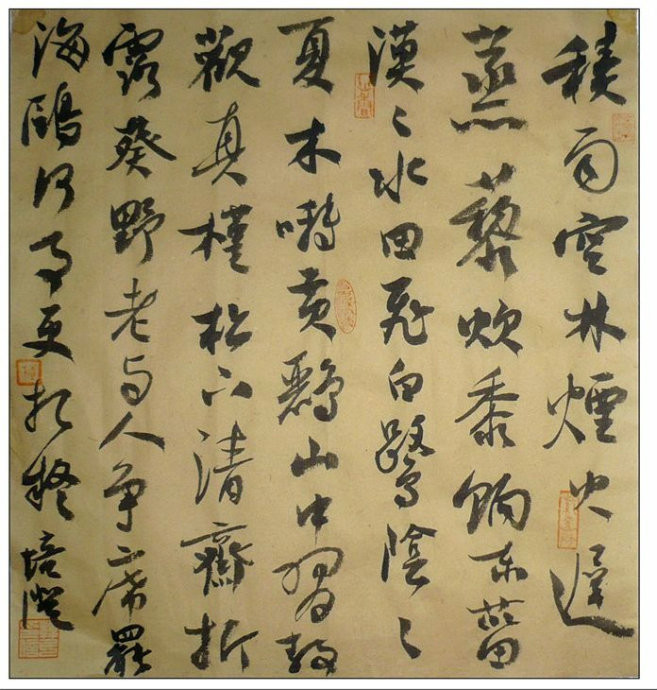 積雨空林煙火遲
蒸藜炊黍餉東菑
漠〻水田飛白鷺陰〻
夏木囀黃鸝山中習靜
觀真槿松下清齋折
露葵野老与人爭席罷
海鷗何事更相疑 培